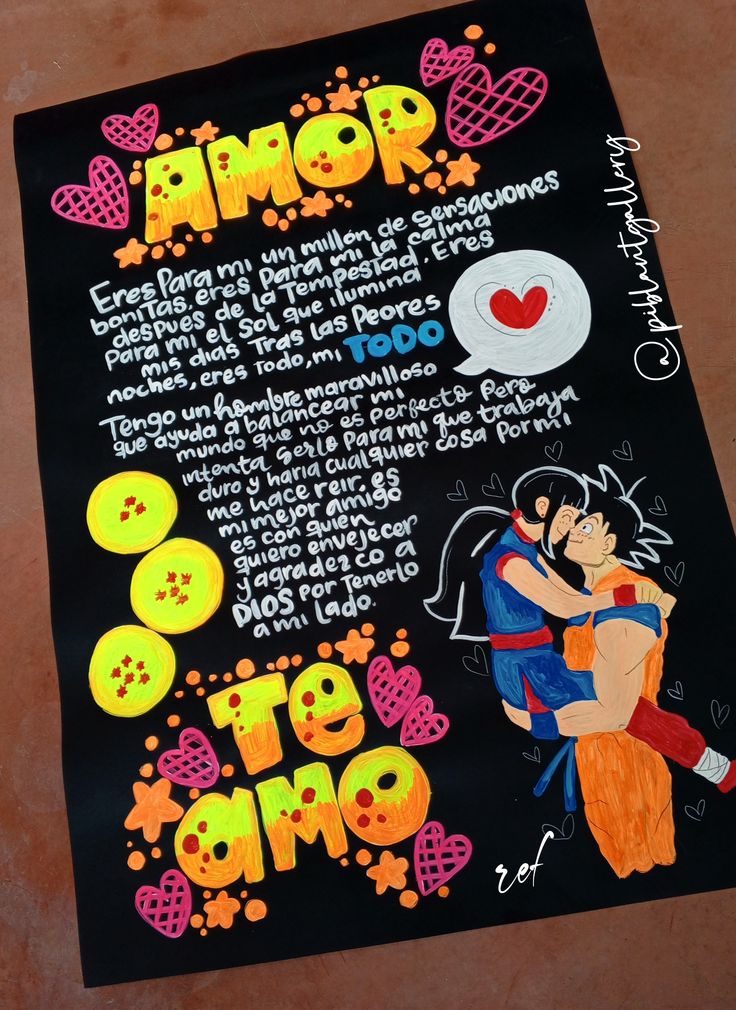 AMOR
Eres Para mi un millón de sensaciones
bonitas, eres Para mi la calma
después de la Tempestad, Eres
Para mi el Sol que ilumina
mis dias Tras las Peores
noches, eres Todo, mi TODO
Tengo un hombre maravilloso
que ayuda a balancear mi
mundo que no es Perfecto Pero
intenta serlo Para mi que trabaja
duro y haria cualquier cosa Por mi
me hace reir, es
mi mejor amigo
es con quien
quiero envejecer
y agradezco a
DIOS por Tenerlo
a mi lado.
Te
amo
ref
@piblantgallerig